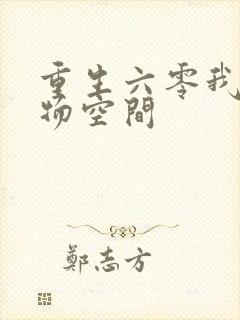 重生六零我
物空間
鄭志方